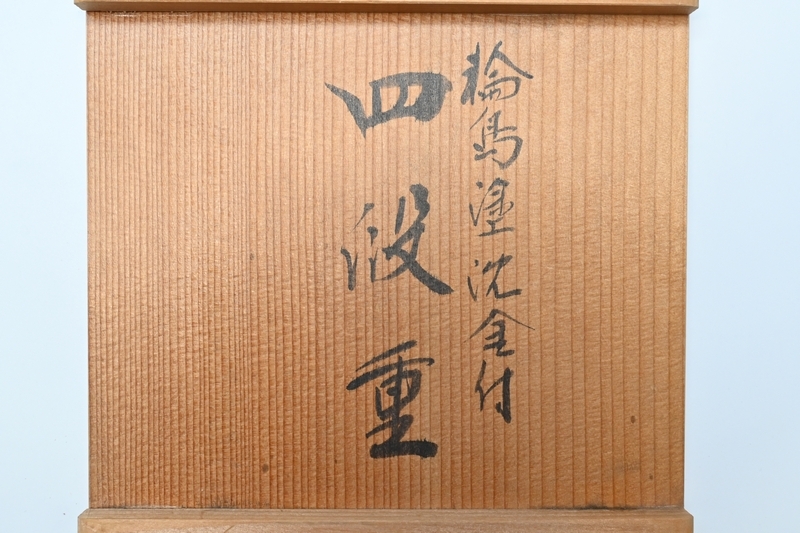 輪島塗沈金付
四段重